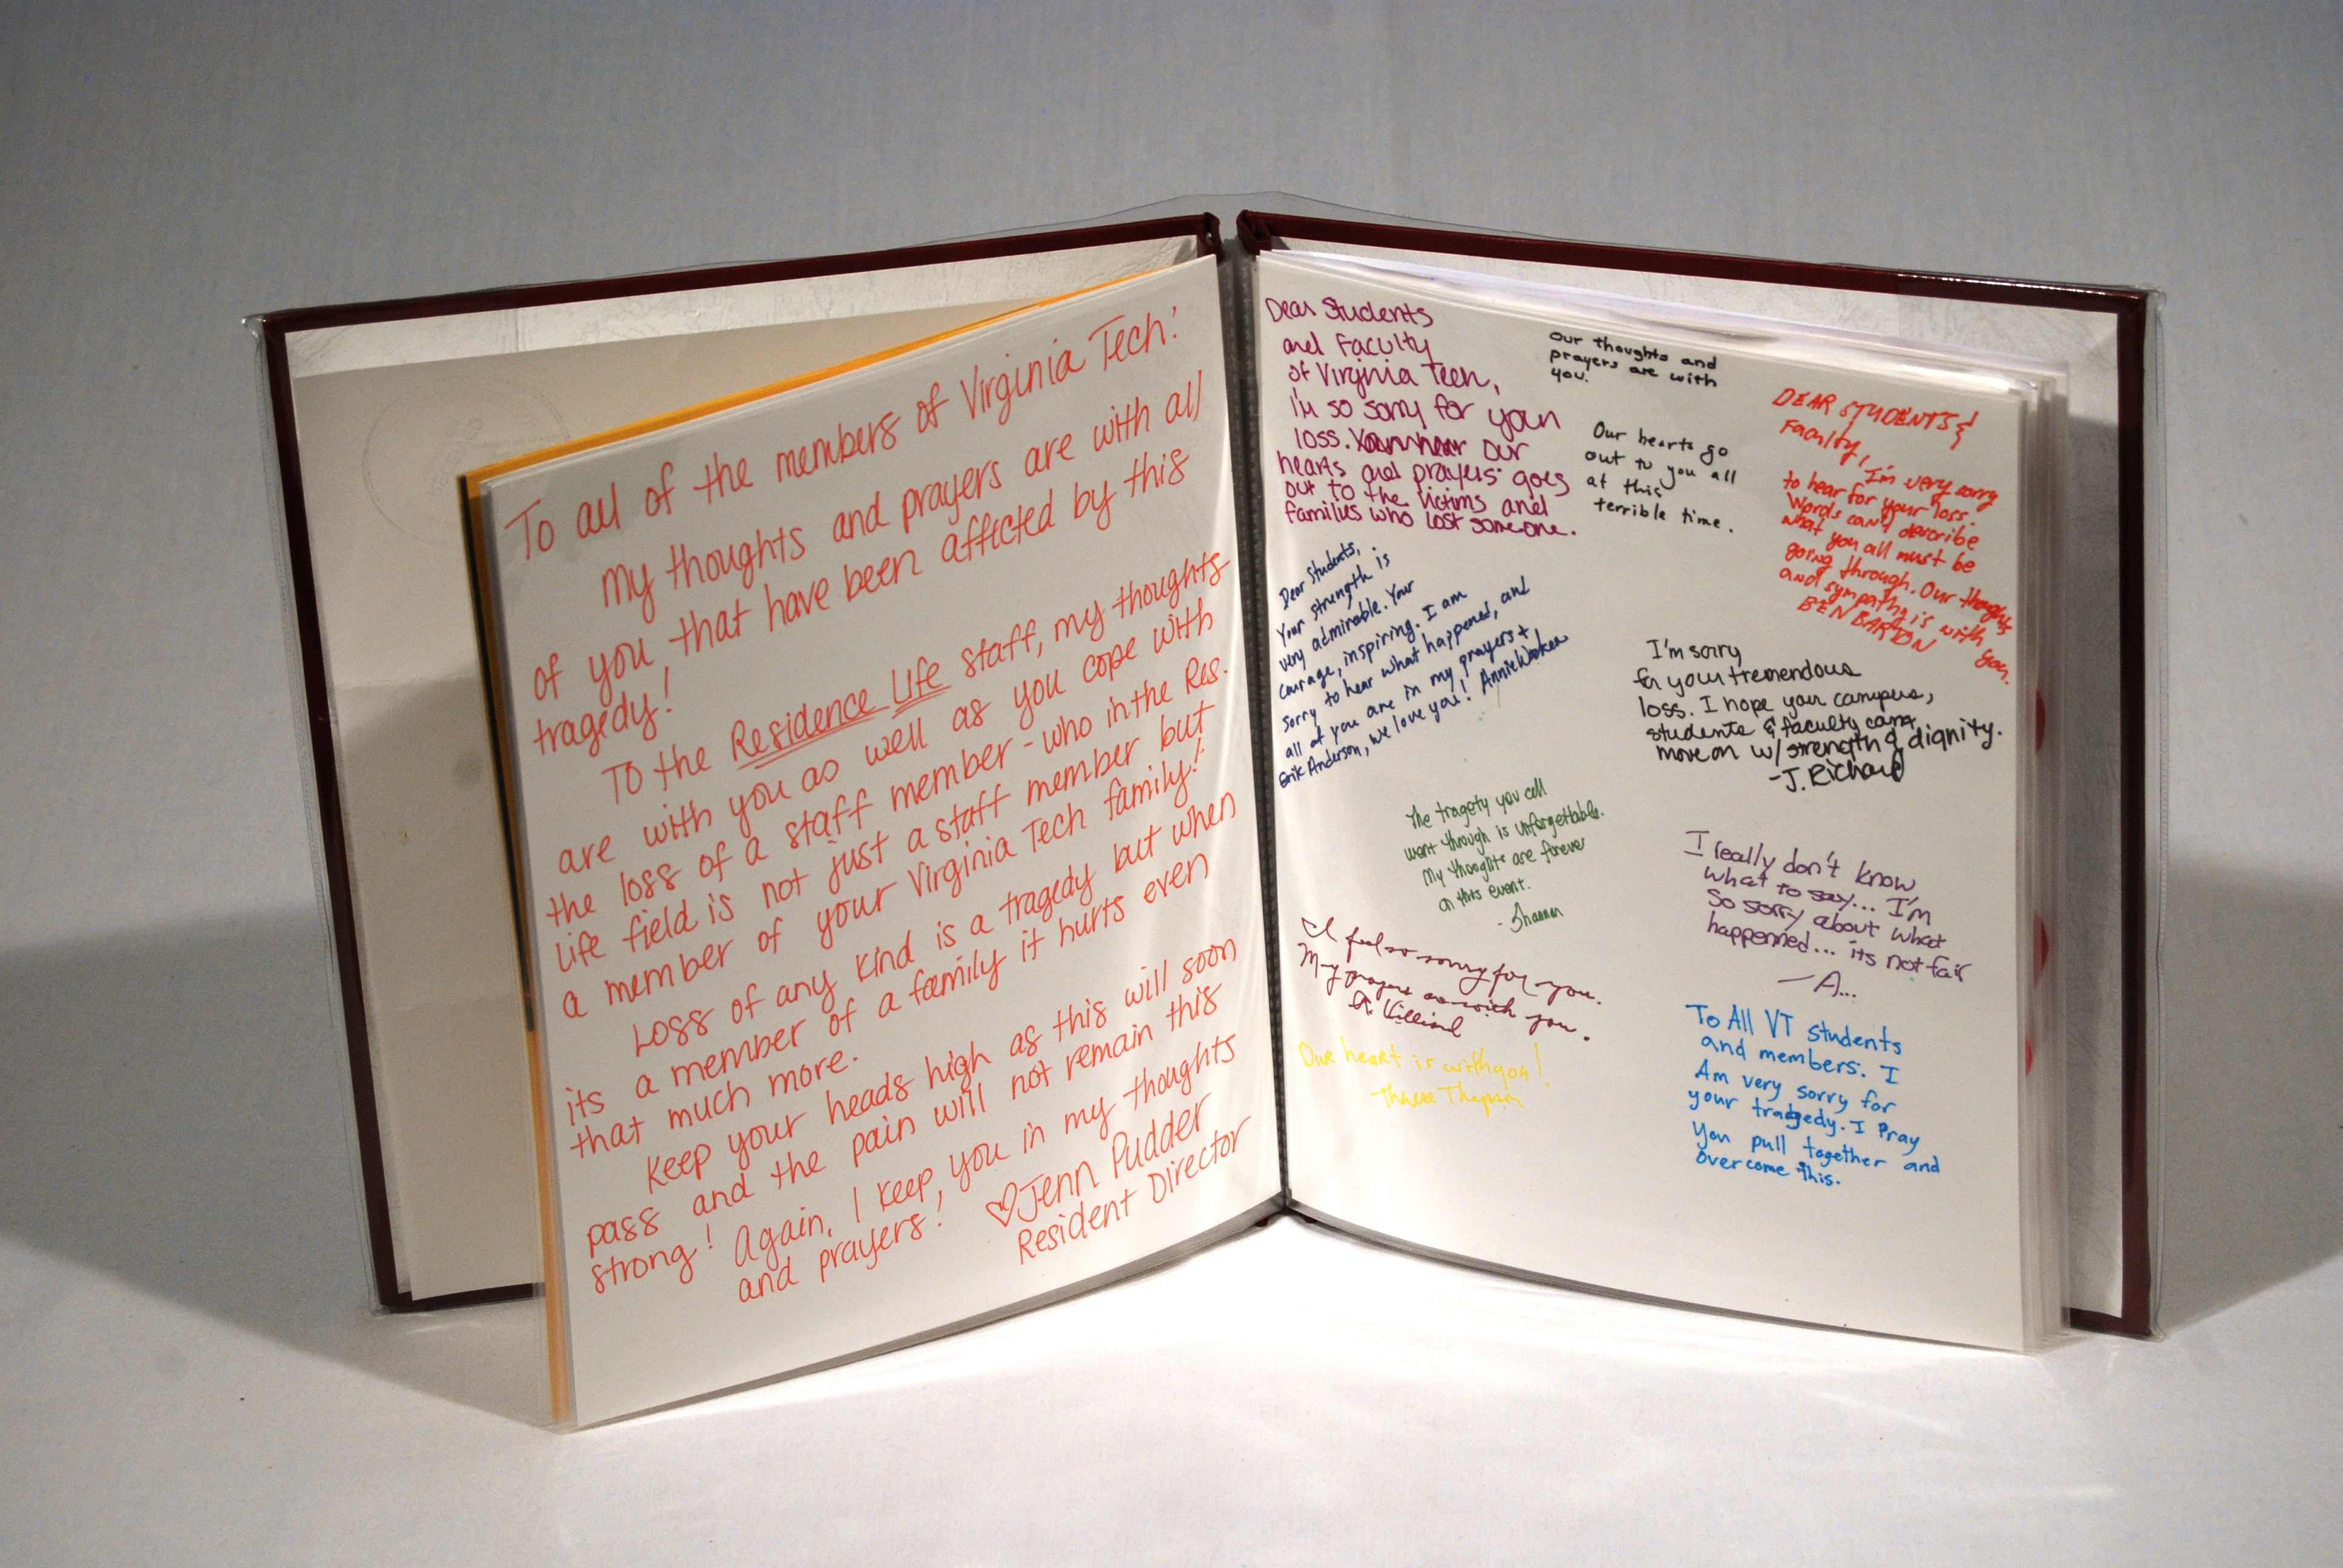 To all of the members of Virginia Tech:
My thoughts and prayers are with all
of you that have been affected by this
tragedy!
To the Residence Life staff, my thoughts
are with you as well as you cope with
the loss of a staff member - who in the Res.
Life field is not just a staff member but
a member of your Virginia Tech family!
Loss of any kind is a tragedy but when
its a member of a family it hurts even
that much more.
Keep your heads high as this will soon
pass and the pain will not remain this
strong! Again, I keep you in my thoughts
and prayers!
Jenn Pudder
Resident Director
Dear Students
and Faculty
of Virginia Tech,
I'm so sorry for your
loss. Our
hearts and prayers goes
out to the victims and
families who lost someone.
Our thoughts and
prayers are with
you.
Our hearts go
out to you all
at this
terrible time.
DEAR STUDENTS &
Faculty,
I'm very sorry
to hear for your loss.
Words can't describe
what you all must be
going through. Our thoughts
and sympathy is with you.
BEN BARTON
Dear Students,
Your strength is
very admirable. Your
courage, inspiring. I am
sorry to hear what happened, and
all of you are in my prayers +
Erik Anderson, we love you! Annie
I'm sorry
for your tremendous
loss. I hope your campus,
students & faculty can
move on w/ strength & dignity.
-J. Richard
The tragety you all
went through is unforgettable.
My thoughts are forever
on this event.
- Shannon
I really don't know
what to say... I'm
so sorry about what
happenned... its not fair
- A...
I feel so sorry for you.
My prayers are with you.
Our heart is with you!
To All VT students
and members: I
Am very sorry for
your tradgedy. I Pray
You pull together and
overcome this.